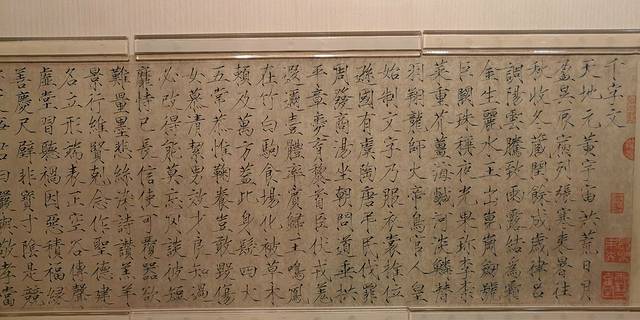 千字文
天地元黃宇宙洪荒日月
盈昃辰宿列張寒來暑往
秋收冬藏閏餘成歲律呂
調陽雲騰致雨露結為霜
金生麗水玉出崑崗劒號
巨闕珠稱夜光果珍李柰
菜重芥薑海鹹河淡鱗潛
羽翔龍師火帝鳥官人皇
始制文字乃服衣裳推位
遜國有虞陶唐弔民伐罪
周發商湯坐朝問道垂拱
平章愛育黎首臣伏戎羌
遐邇壹體率賓歸王鳴鳳
在竹白駒食場化被草木
賴及萬方蓋此身髮四大
五常恭惟鞠養豈敢毀傷
女慕清絜男效才良知過
必改得能莫忘罔談彼短
靡恃己長信使可覆器欲
難量墨悲絲染詩讚羔羊
景行維賢剋念作聖德建
名立形端表正空谷傳聲
虛堂習聽禍因惡積福緣
善慶尺璧非寶寸陰是競
君曰嚴與敬孝當